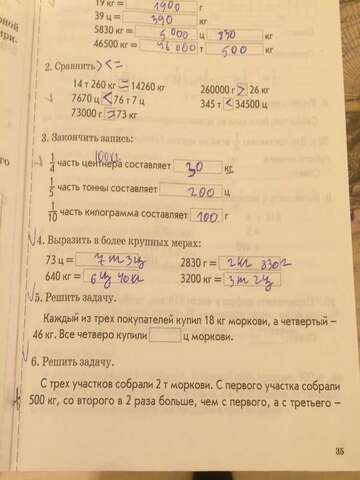 19 кг = 1900 г
39 ц = 390 кг
5830 кг = 5000 ц 830 кг
46500 кг = 46 000 т 500 кг
2. Сравнить > < =
14 т 260 кг = 14260 кг 260000 г > 26 кг
7670 ц < 76 т 7 ц 345 т < 34500 ц
73000 г = 73 кг
3. Закончить запись:
100кг
1/4 часть центнера составляет 30 кг
1/5 часть тонны составляет 200 ц
1/10 часть килограмма составляет 100 г
4. Выразить в более крупных мерах:
73 ц = 7 т 3 ц 2830 г = 2 кг 830 г
640 кг = 6 ц 40 кг 3200 кг = 3 т 2 ц
5. Решить задачу.
Каждый из трех покупателей купил 18 кг моркови, а четвертый –
46 кг. Все четверо купили ц моркови.
6. Решить задачу.
С трех участков собрали 2 т моркови. С первого участка собрали
500 кг, со второго в 2 раза больше, чем с первого, а с третьего –
35